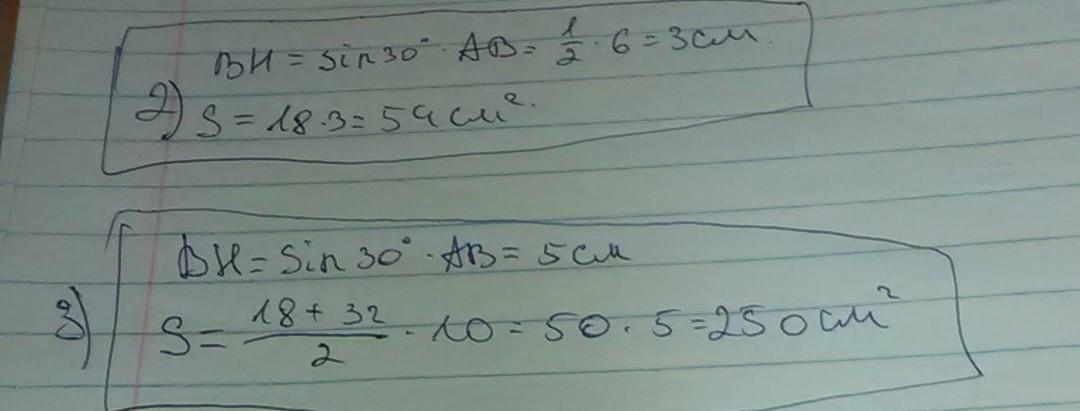 BH = sin30° · AB = 1/2 · 6 = 3 см.
2) S = 18 · 3 = 54 см².
BH = sin 30° · AB = 5 см
3) S = (18 + 32)/2 · 10 = 50 · 5 = 250 см²